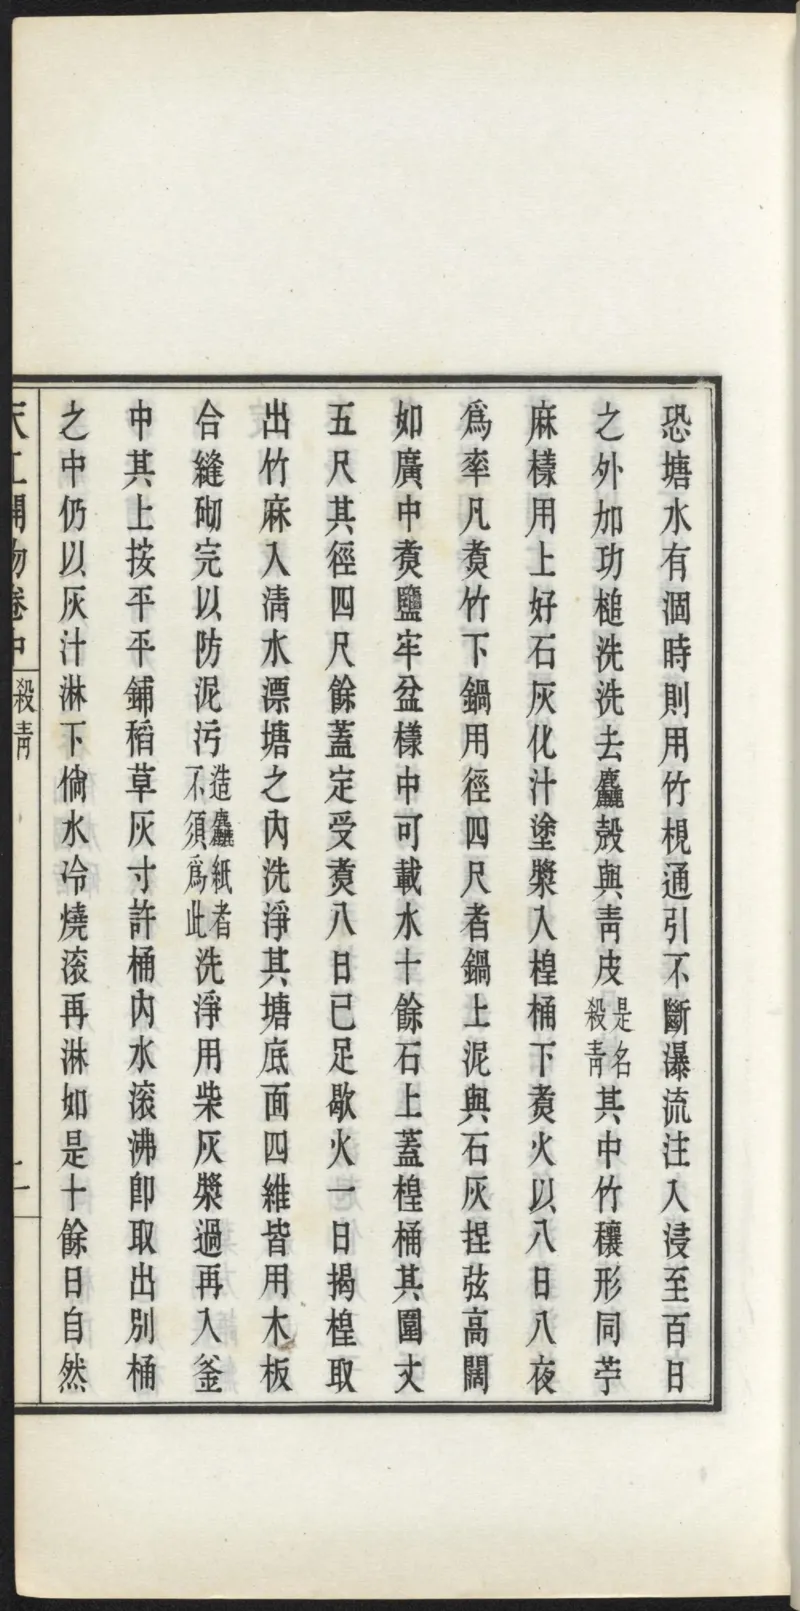 恐塘水有涸時則用竹梘通引不斷瀑流注入浸至百日
之外加功槌洗洗去麤殼與靑皮是名殺靑其中竹穰形同苧
麻樣用上好石灰化汁塗漿入楻桶下煑火以八日八夜
爲率凡煑竹下鍋用徑四尺者鍋上泥與石灰揑弦高闊
如廣中煑鹽牢盆樣中可載水十餘石上蓋楻桶其圍丈
五尺其徑四尺餘蓋定受煑八日已足歇火一日揭楻取
出竹麻入淸水漂塘之內洗淨其塘底面四維皆用木板
合縫砌完以防泥污造麤紙者不須爲此洗淨用柴灰漿過再入釜
中其上按平平鋪稻草灰寸許桶內水滚沸卽取出別桶
之中仍以灰汁淋下倘水冷燒滚再淋如是十餘日自然
天工開物卷中
殺靑
二